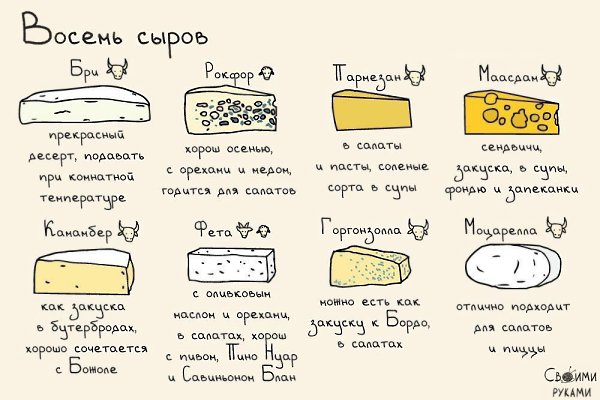 Восемь сыров
Бри
прекрасный
десерт, подавать
при комнатной
температуре
Рокфор
хорош осенью,
с орехами и медом,
годится для салатов
Пармезан
в салаты
и пасты, соленые
сорта в супы
Маасдам
сендвичи,
закуска, в супы,
фондю и запеканки
Камамбер
как закуска
в бутербродах,
хорошо сочетается
с Божоле
Фета
с оливковым
маслом и орехами,
в салатах, хорош
с пивом, Пино Нуар
и Савиньоном Блан
Горгонзолла
можно есть как
закуску к Бордо,
в салатах
Моцарелла
отлично подходит
для салатов
и пиццы
Своими
руками